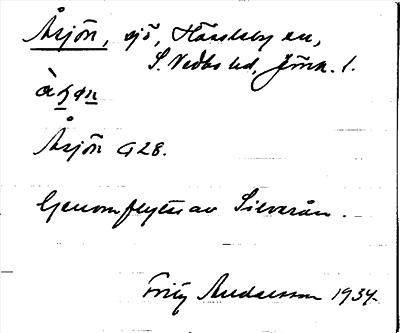 Åsjön, sjö, Hässleby sn,
S. Vedbo hd, Jönk. l.
Åsjön G28.
Genomflytes av Silverån.
Fritz Andersson 1934.